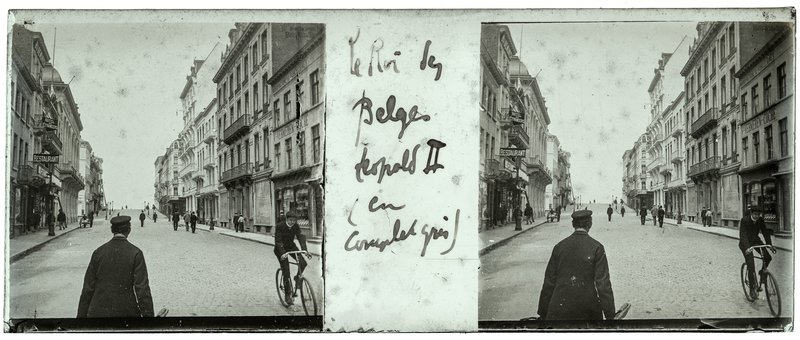 RESTAURANT
Le Roi des
Belges
Leopold II
(en
Complet gris)
RESTAURANT